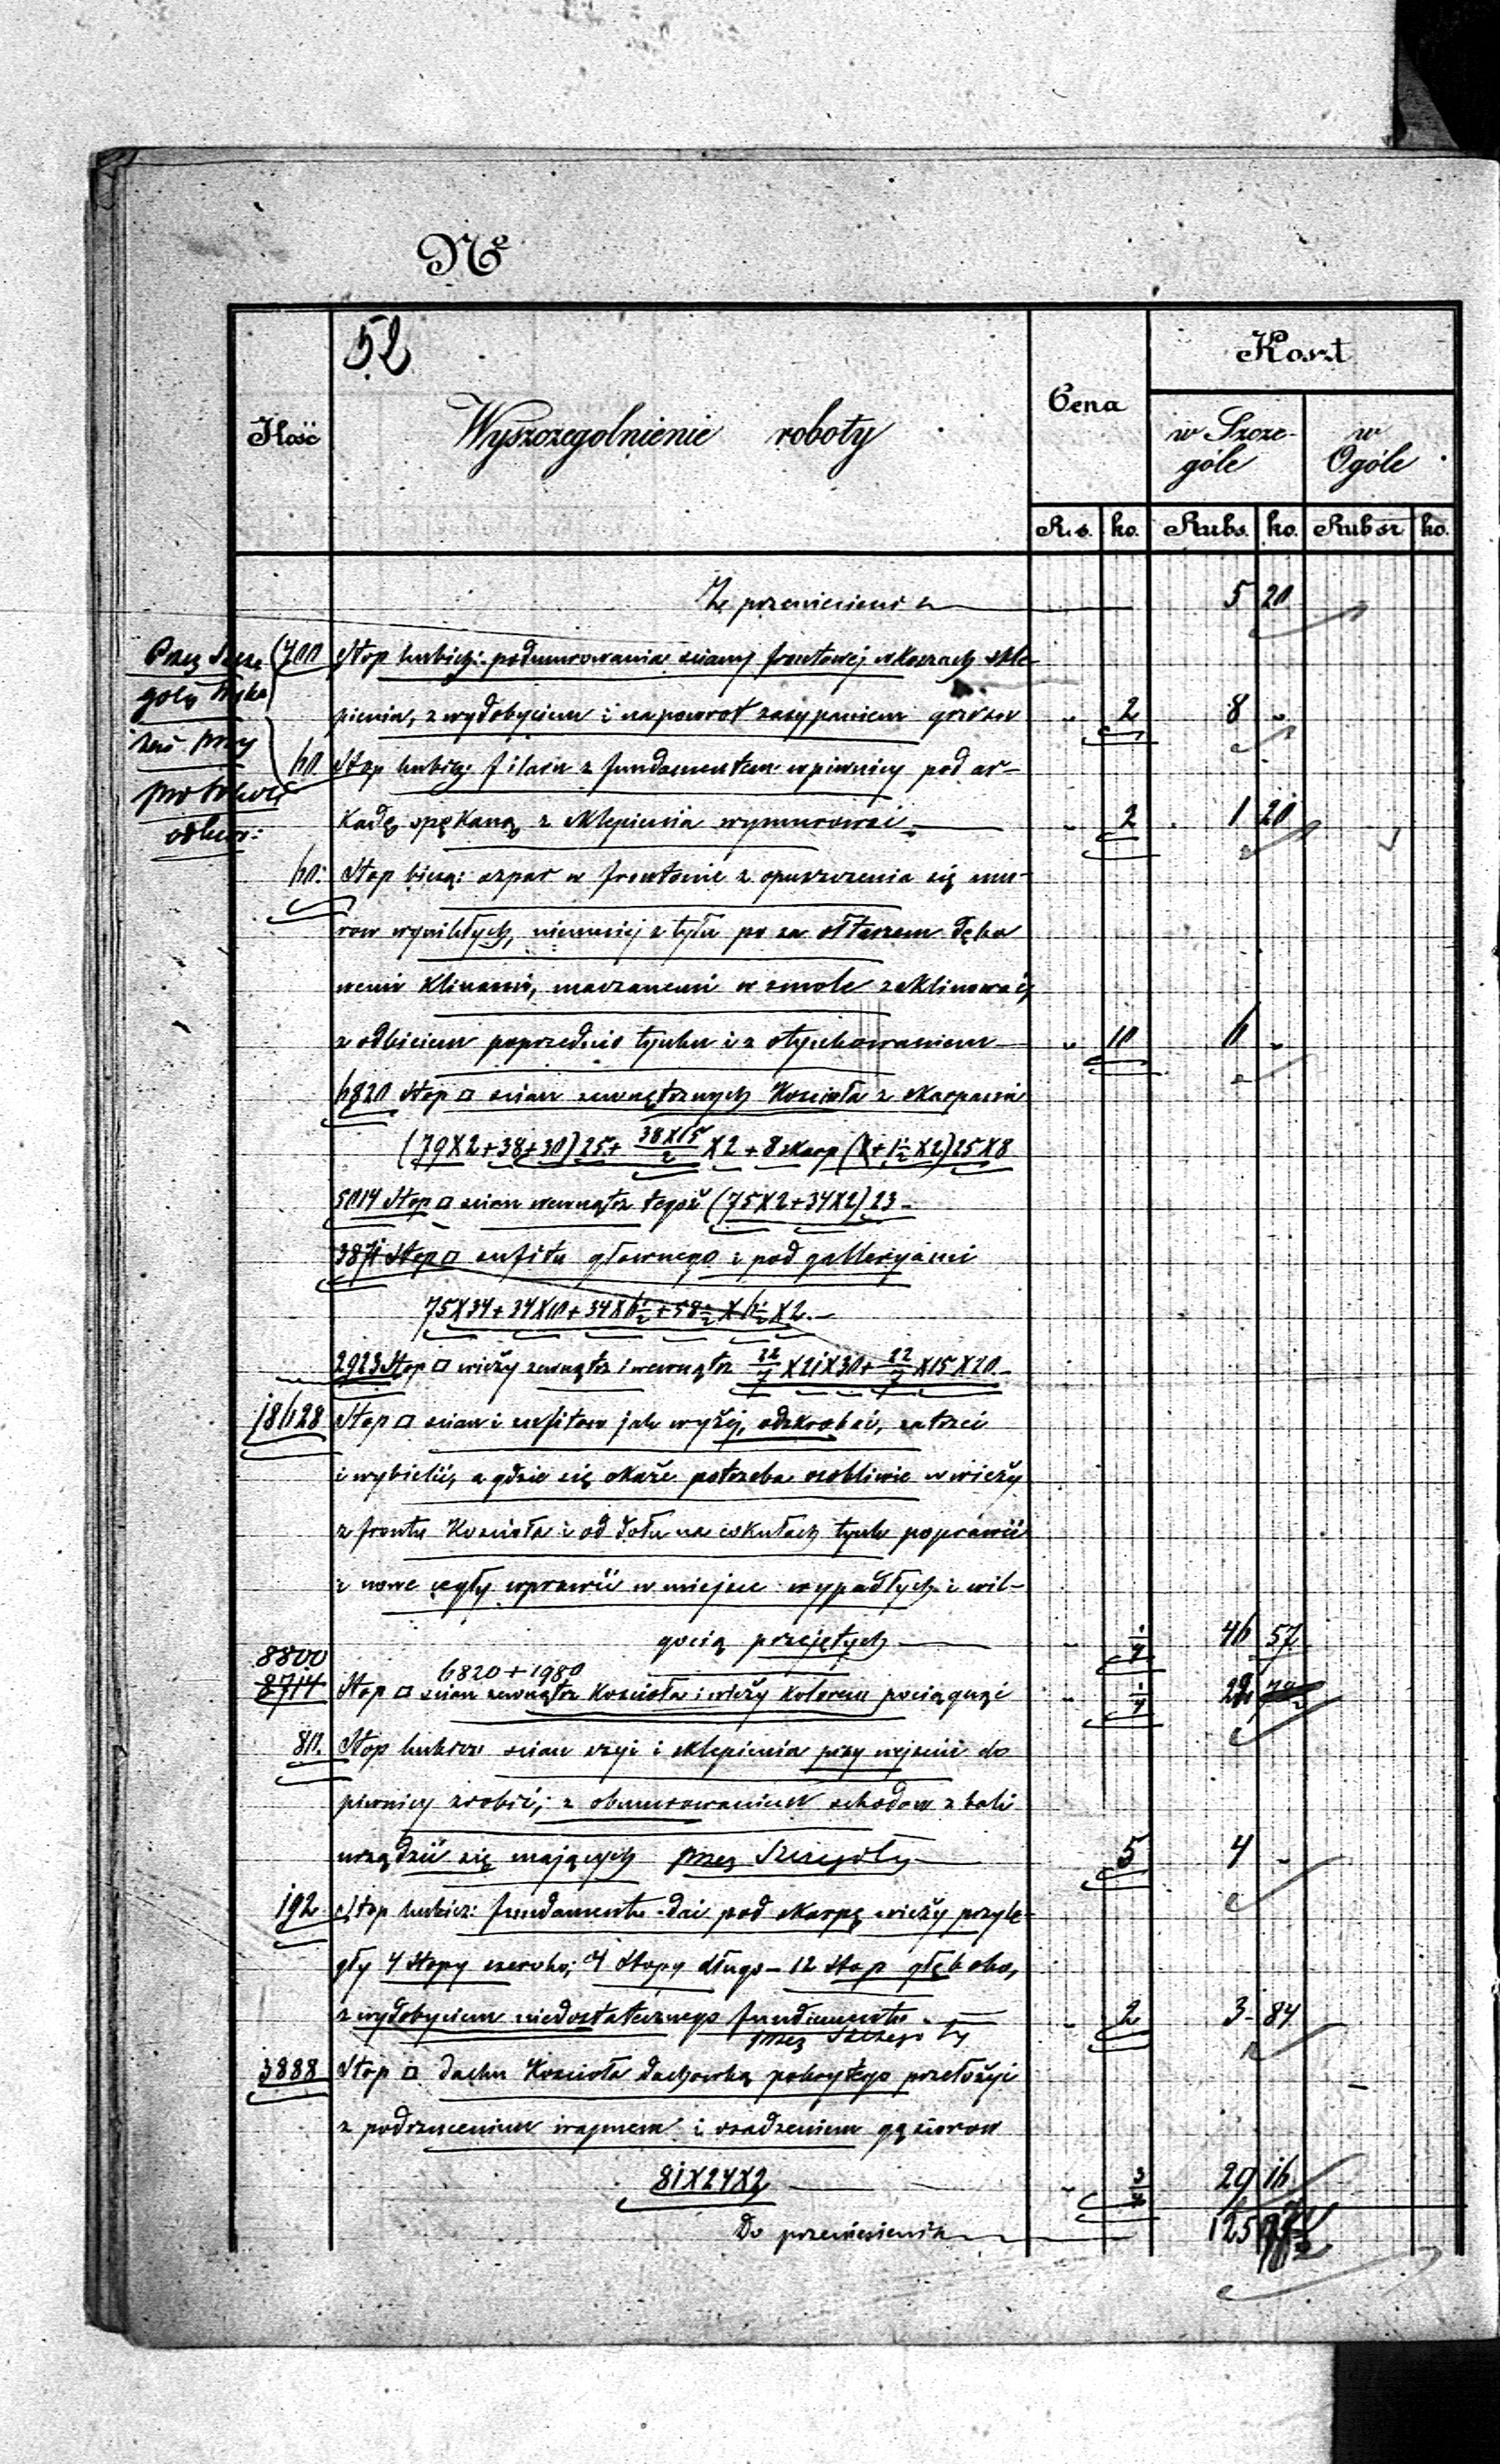 №
52
Ilość
Wyszczegolnienie roboty
Cena
Koszt
w Szcze-
góle
w
Ogóle
R.s. ko. Rubs. ko. Rubsr ko.
Z przeniesienia 5 20
Przez Szcze
goły
przy
400 Stop kubicz: podmurowania sciany frontowej w koszach skle-
pienia, z wydobyciem i na powrot zasypaniem gruzow " 2 8 "
60 Stop kubicz: filaru z fundamentem w piwnicy pod ar-
kadę spękaną z sklepienia wymurować 2 1 20
60. Stop bieżą: szpar w frontonie z opuszczenia się mu-
row wynikłych, niemniej z tyłu po za ołtarzem dębo
wemi klinami, maczanemi w smole zaklinować,
z odbiciem poprzednio tynku i z otynkowaniem " 10 6 "
6820 Stop □ scian zewnętrznych Kościoła z skarpami
(79X2+38+30)25+ 38X15/2 X2 + 8 skarp (X+1½X2)25X8
5014 Stop □ scian wewnątrz tegoż (75X2+34X2)23-
3871 Stop □ sufitu głownego i pod galleryami
75X34+34X10+34X6½+58½X6½X2.-
2923 Stop □ wieży zewnątrz i wewnątrz 22/7 X21X30+ 22/7 X15X20.-
18628 Stop □ scian i sufitow jak wyżej, odskrobać, zatrzeć
i wybielić, a gdzie się okaże potrzeba osobliwie w wieży
z frontu Kościoła i od dołu na cokułach tynk poprawić
i nowe cegły wprawić w miejsce wypadłych i wil-
gocią przejętych " ¼ 46 57
8800
6820+1980
8714 Stop □ scian zewnątrz Kościoła i wieży kolorem pociągnąć " ¼ 22
80. Stop kubicz: scian szyi i sklepienia przy wejściu do
piwnicy zrobić, z obmurowaniem schodow z bali
urządzić się mających przez Szczegóły 5 4 "
192 Stop kubicz: fundamentu dać pod skarpę wieży przyle-
gły 4 Stopy szeroko, 4 Stopy długo – 12 Stop głęboko,
z wydobyciem niedostatecznego fundamentu " 2 3 84
przez Szczegóły
3888 Stop □ dachu Kościoła dachowką pokrytego przełożyć
z podrzuceniem wapnem i osadzeniem gąsiorow
81X24X2 " ¾ 29 16
Do przeniesienia 125